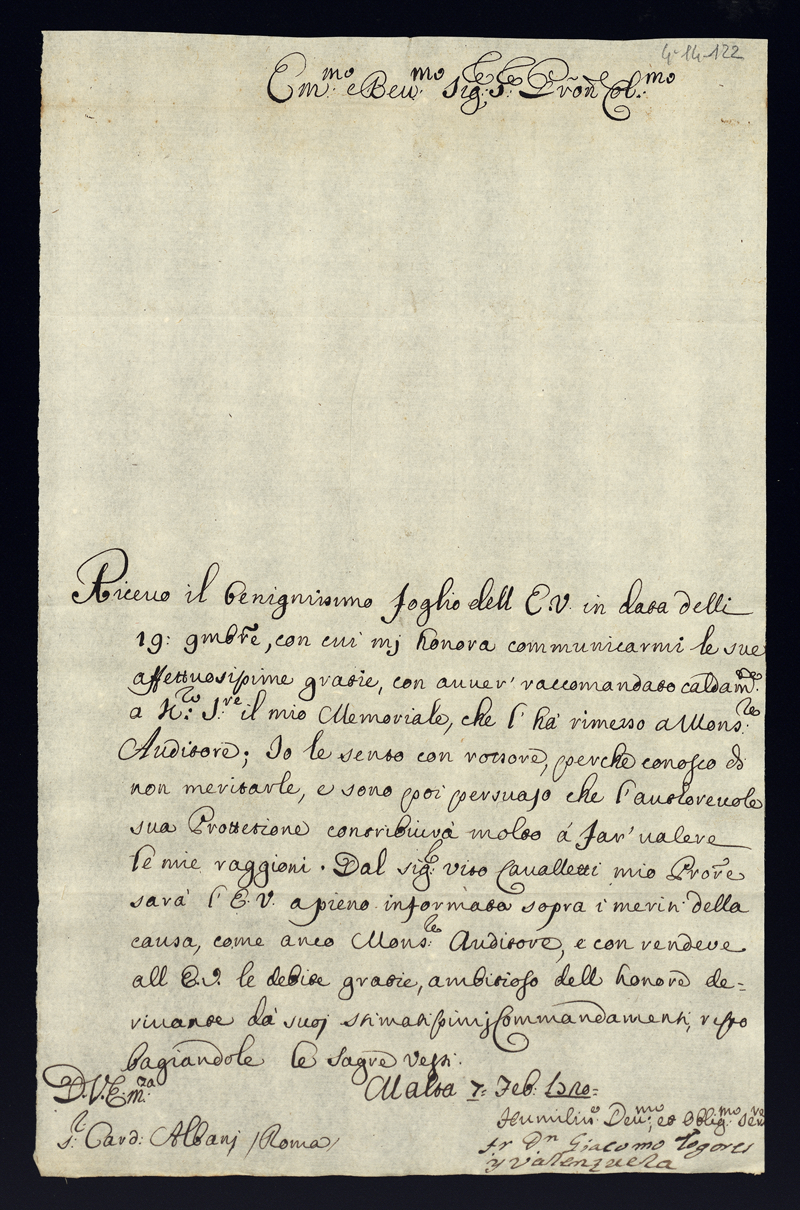 4-14-122
Em.mo e Reu.mo Sig.re S.re Prone Col.mo
Riceuo il benignissimo foglio dell E.V. in data delli
19: 9mbre, con cui mj honora communicarmi le sue
affettuosissime gratie, con auuer' raccomandato caldam.te
a N.ro S.re il mio Memoriale, che l' hà rimesso a Mons.re
Auditore; Io le sento con rossore, perche conosco di
non meritarle, e sono poi persuaso che l'autoreuole
sua Prottetione contribiurà molto á far' ualere
le mie raggioni. Dal sig.r Vito Caualletti mio Prore
sarà l' E.V. a pieno informata sopra i meriti della
causa, come anco Mons.re Auditore, e con rendere
all E.V. le debite gratie, ambitioso dell honore de=
riuante dà suoj stimatissimj Commandamenti, resto
bagiandole le sagre uesti.
D.V.E.m.za Malta 7: Feb: 1720=
Humiliss.o Deu.mo, et Oblig.mo Seru.re
S.r Card: Albanj /Roma/ fr Dn Giacomo Togores
y Valenzuela